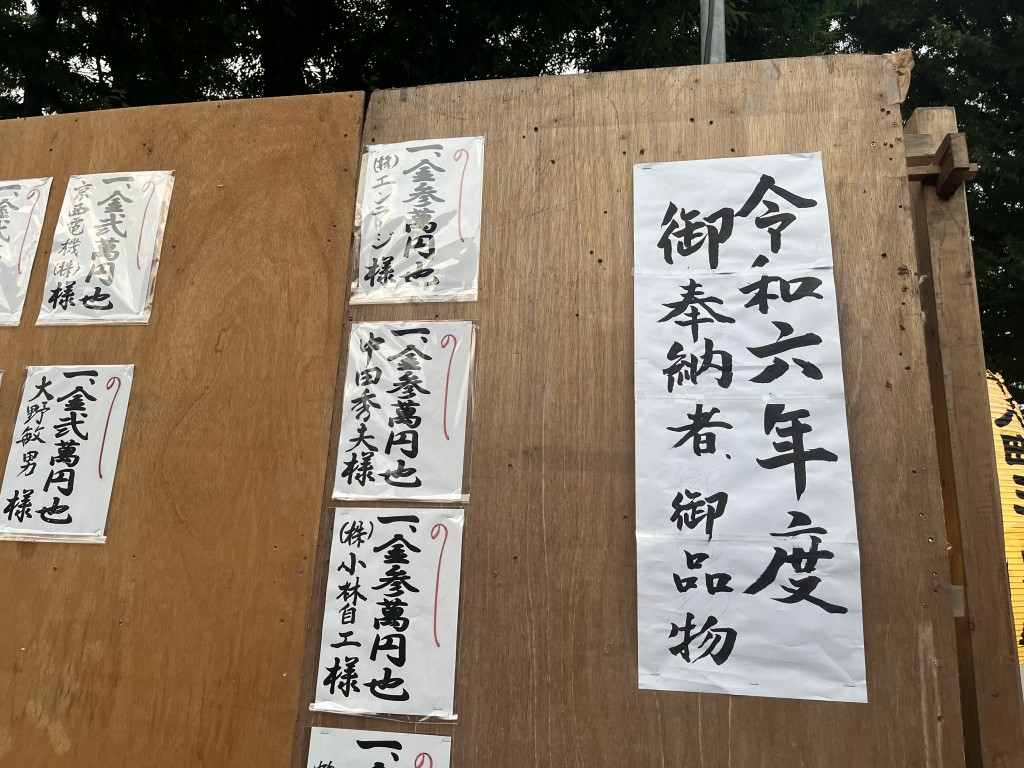 令和六年度
御奉納者、御品物
の
一、金参萬円也
(株)エンラージ様
の
一、金参萬円也
中田秀夫様
の
一、金参萬円也
(株)小林自工様
の
一、金
の
一、金弐萬円也
京西電機(株)様
の
一、金弐萬円也
大野敏男様
の
一、金弐